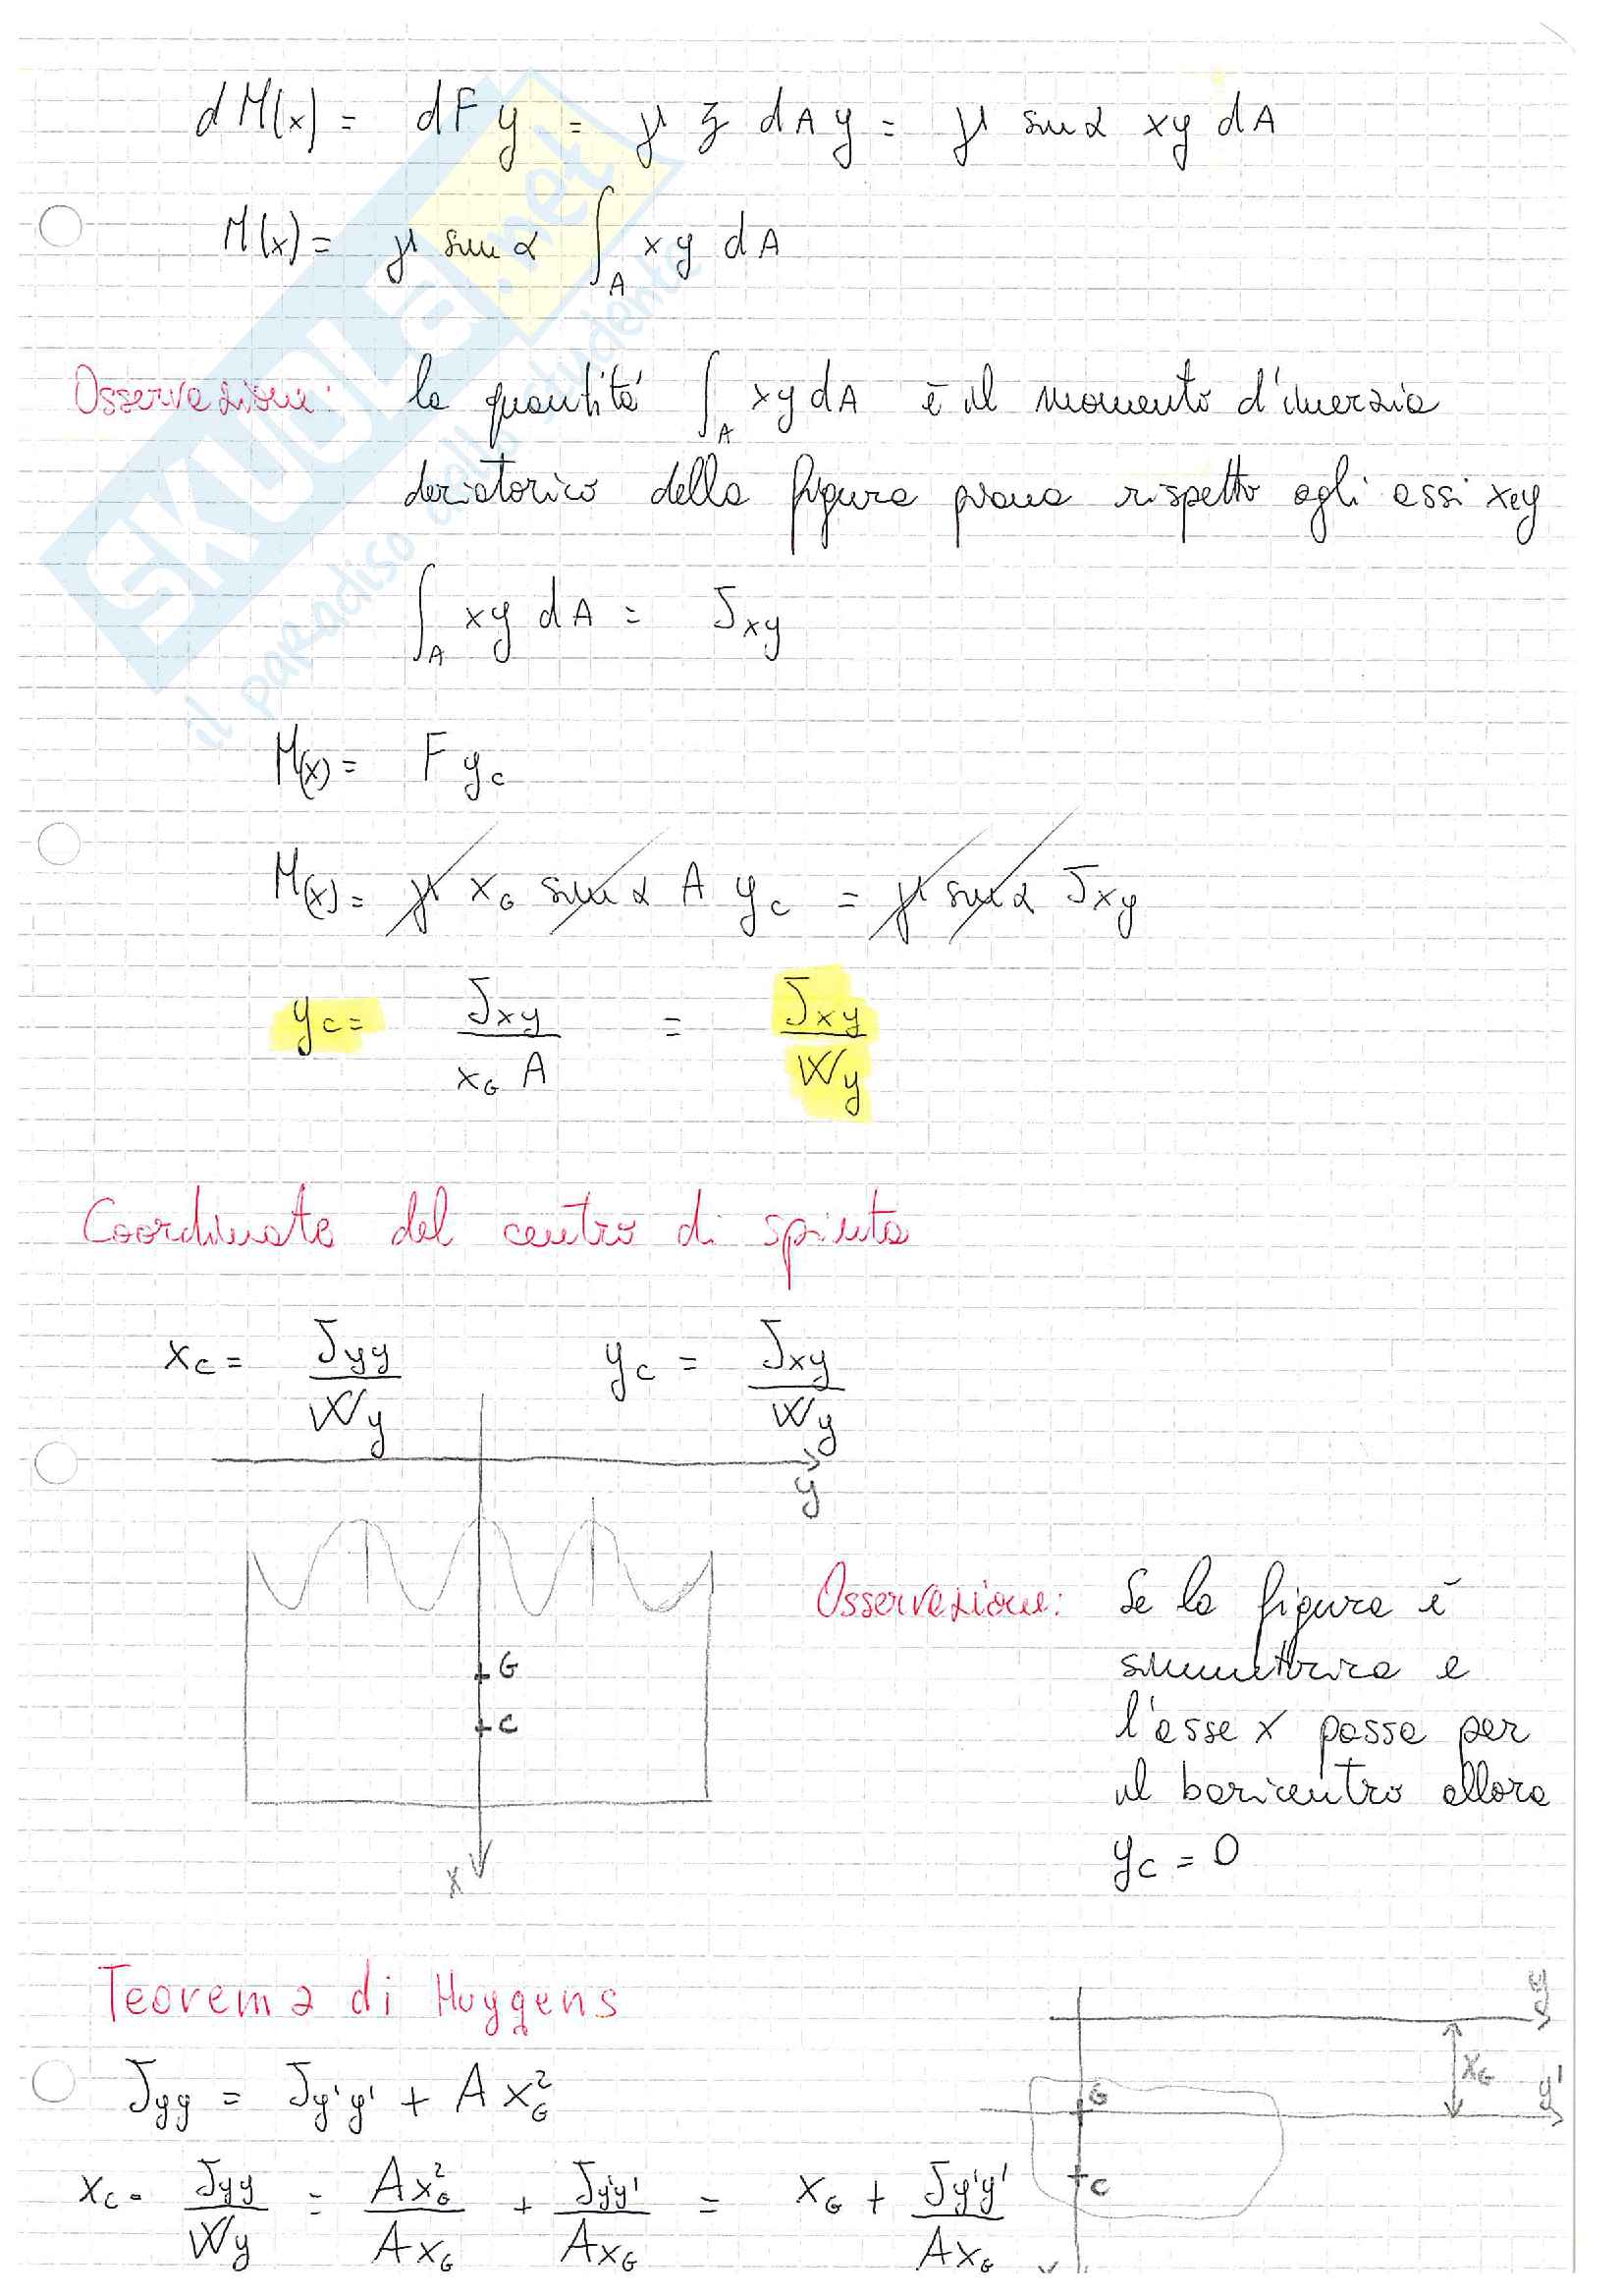 dM(x) = dF y = γ z dA y = γ sin α xy dA
M(x) = γ sin α ∫_A xy dA
Osservazione: la quantità ∫_A xy dA è il momento d'inerzia
deviatorico della figura piana rispetto agli assi x e y
∫_A xy dA = Jxy
M(x) = F y_C
M(x) = γ x_G sin α A y_C = γ sin α Jxy
y_C = Jxy / (x_G A) = Jxy / Wy
Coordinate del centro di spinta
x_C = Jyy / Wy   y_C = Jxy / Wy
y
G
C
x
Osservazione: Se la figura è
simmetrica e
l'asse x passa per
il baricentro allora
y_C = 0
Teorema di Huygens
Jyy = Jy'y' + A x_G²
x_C = Jyy / Wy = A x_G² / (A x_G) + Jy'y' / (A x_G) = x_G + Jy'y' / (A x_G)
y
x_G
y'
G
C
x
SKUOLA.net
il paradiso dello studente